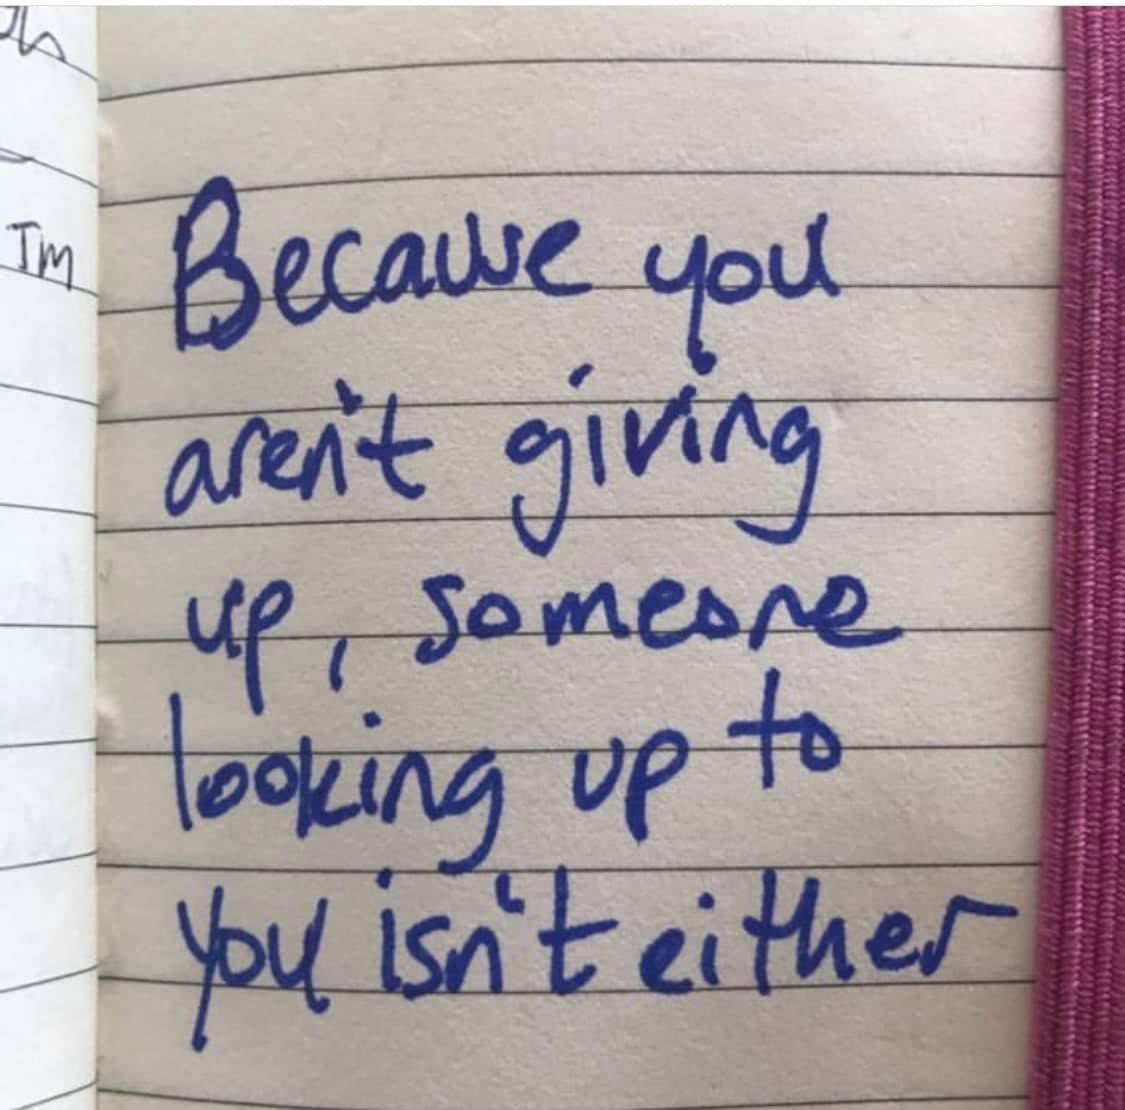 Im
Because you
aren't giving
up, someone
looking up to
you isn't either